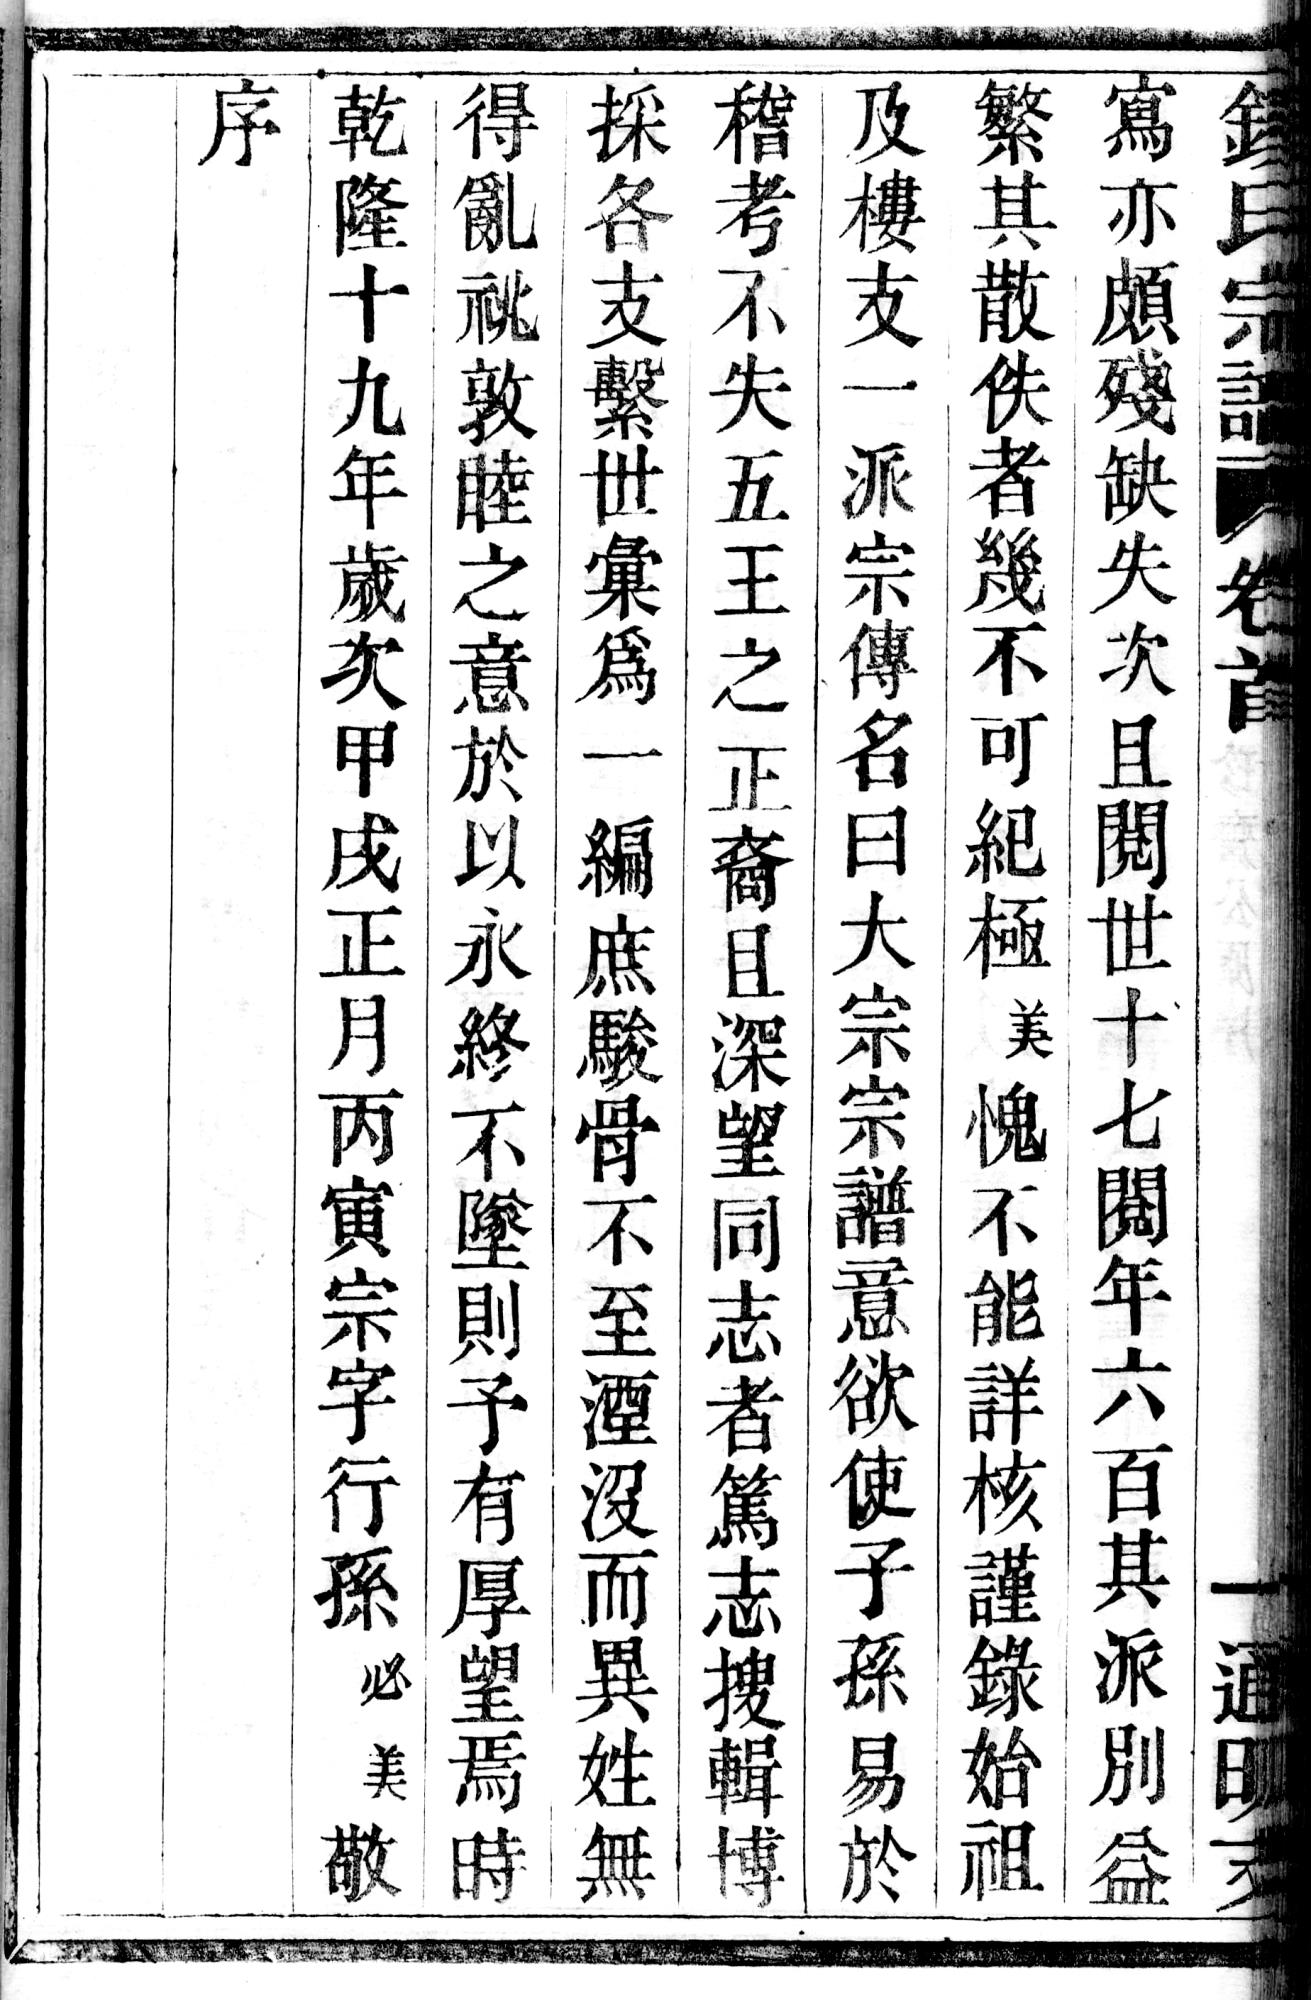 錢氏宗譜 卷首 一 通明支
寫亦頗殘缺失次且閱世十七閱年六百其派別益
繁其散佚者幾不可紀極美愧不能詳核謹錄始祖
及樓支一派宗傳名曰大宗宗譜意欲使子孫易於
稽考不失五王之正裔且深望同志者篤志搜輯博
採各支繫世彙爲一編庶駿骨不至湮沒而異姓無
得亂祧敦睦之意於以永終不墜則予有厚望焉時
乾隆十九年歲次甲戌正月丙寅宗字行孫必美敬
序